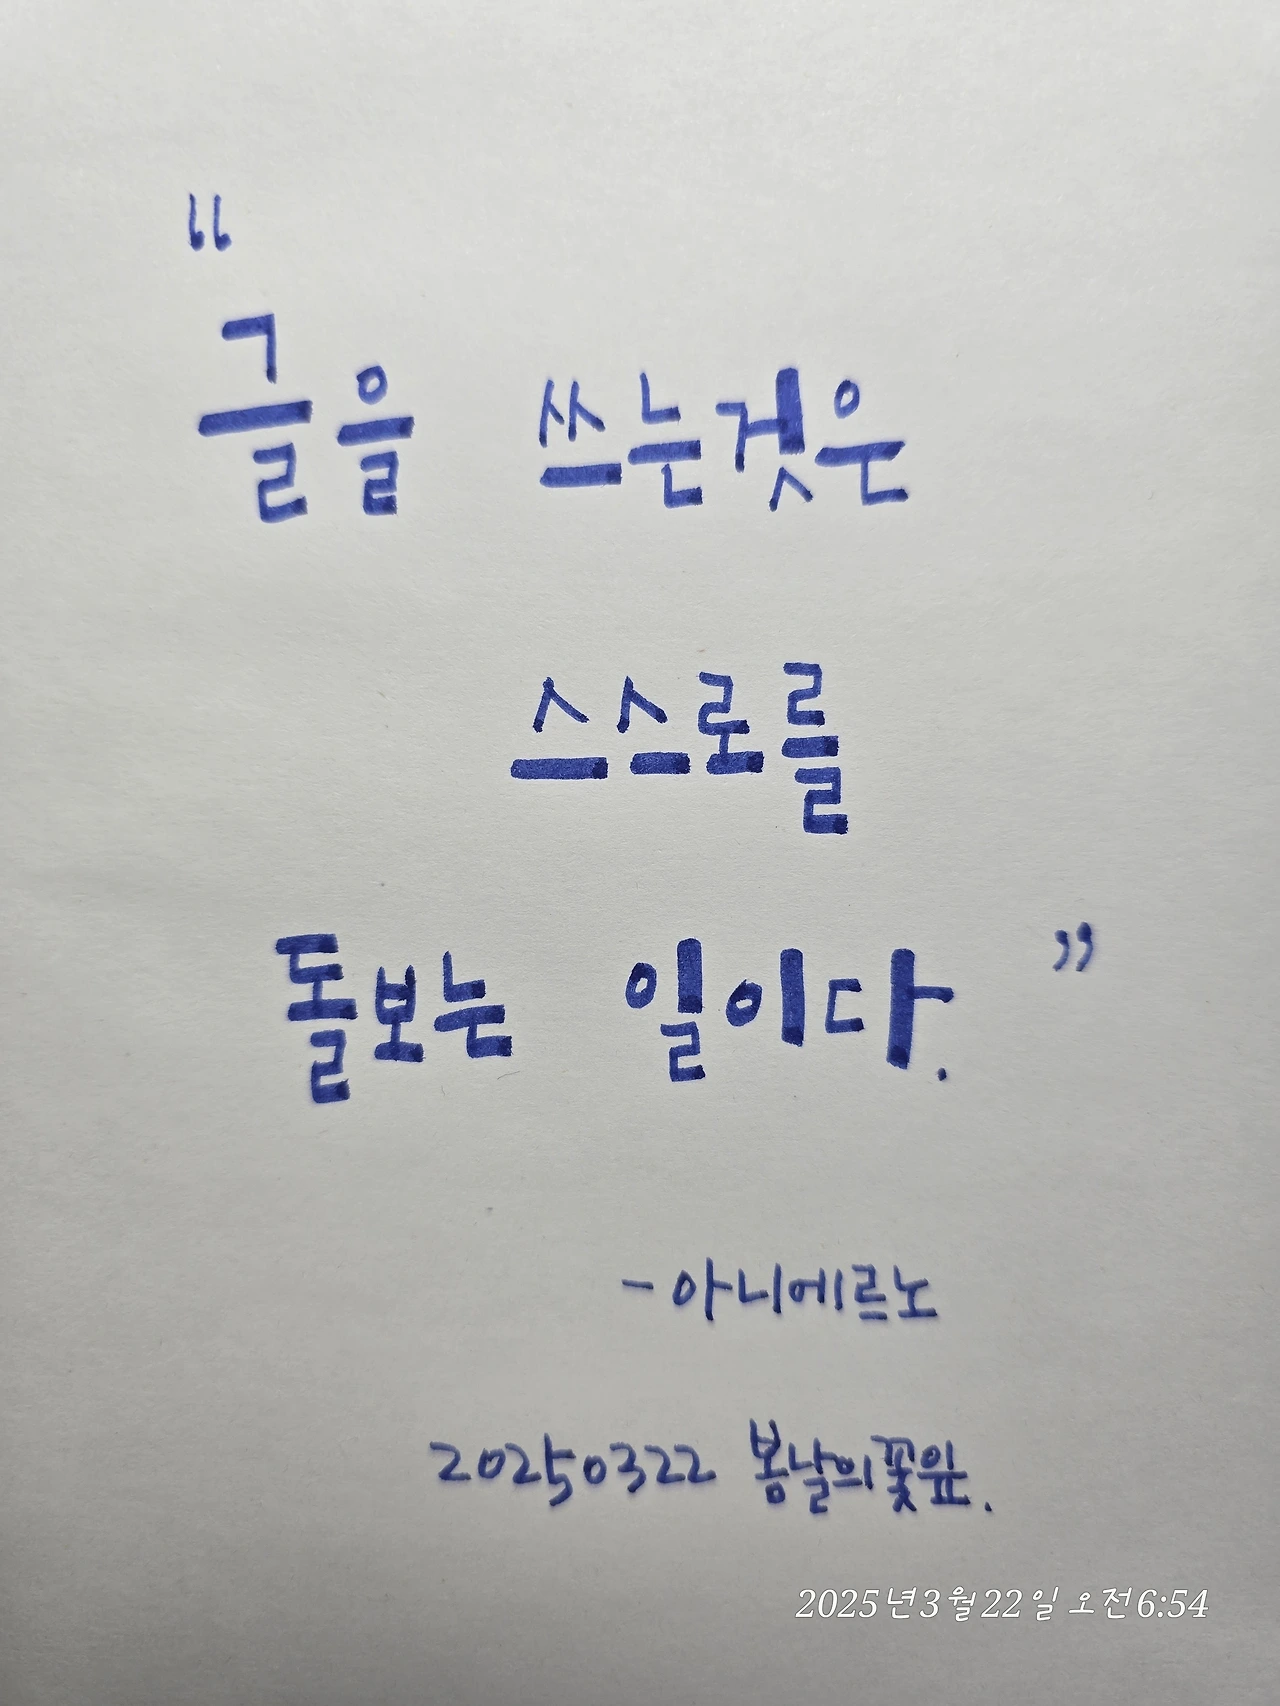 “
글을 쓰는것은
스스로를
돌보는 일이다. ”
-아니에르노
20250322 봄날의꽃잎.
2025년 3월 22일 오전 6:54